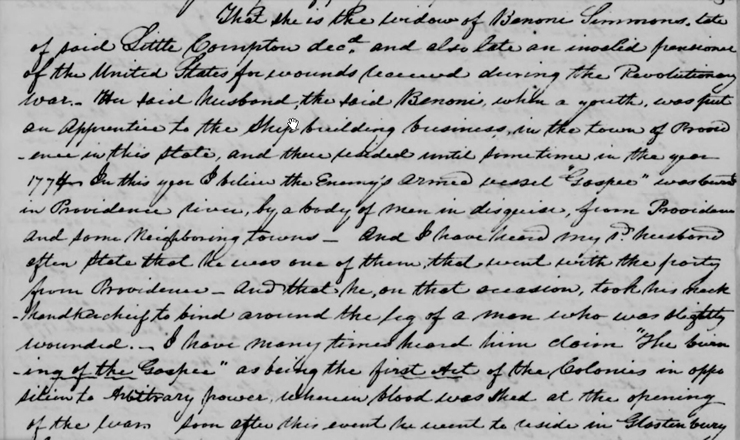 That she is the widow of Benoni Simmons, late
of said Little Compton decd. and also late an invalid pensioner
of the United States for wounds received during the Revolutionary
war. - Her said husband, the said Benoni, when a youth, was put
an Apprentice to the Ship building business, in the town of Provid
-ence in this State, and there resided until sometime in the year
1774. In this year I believe the Enemy's armed vessel "Gaspee" was burnd
in Providence river, by a body of men in disguise, from Providence
and some Neighboring towns - And I have heard my sd. husband
often state that he was one of them that went with the party
from Providence - And that he, on that occasion, took his neck
-handkerchief to bind around the leg of a man who was slightly
wounded. - I have many times heard him claim "The burn
-ing of the Gaspee" as being the first Act of the Colonies in oppo
sition to Arbitrary power, wherein blood was shed at the opening
of the war. soon after this event he went to reside in Glastenbury